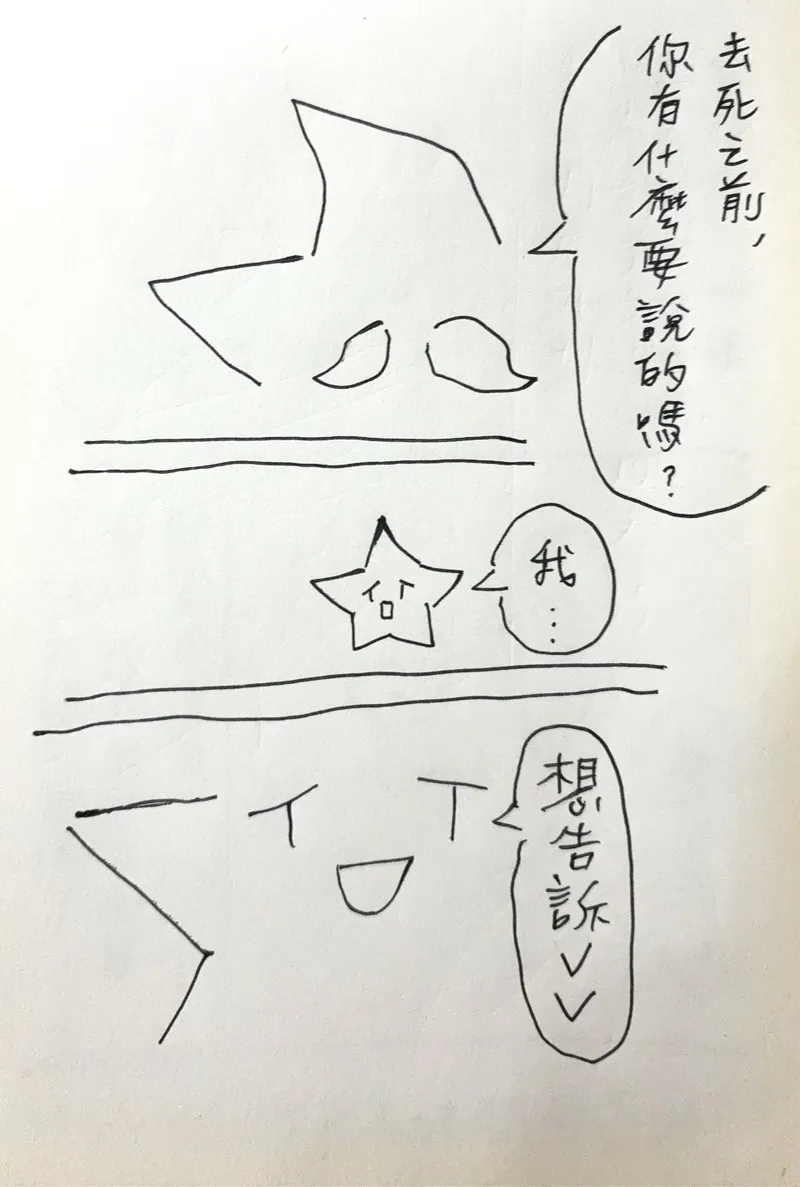 去死之前，
你有什麼要說的嗎？
我…
想告訴VV